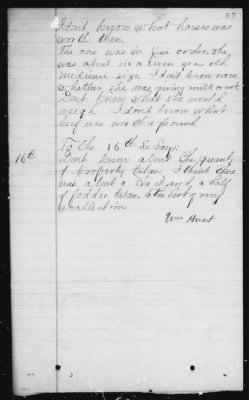 29
I don't know what horses was
worth then.
The one was in fine order. she
was about six or seven year old
medium size I don't know now
whether she was giving milk or not.
Don't know what she would
weigh. I don't know what
beef was worth a pound.
To the 16th He Says:
16th Don't know about the quantity
of Property taken. I think there
was about a stack and a half
of fodder, taken to the best of my
recollection.
Wm Hunt